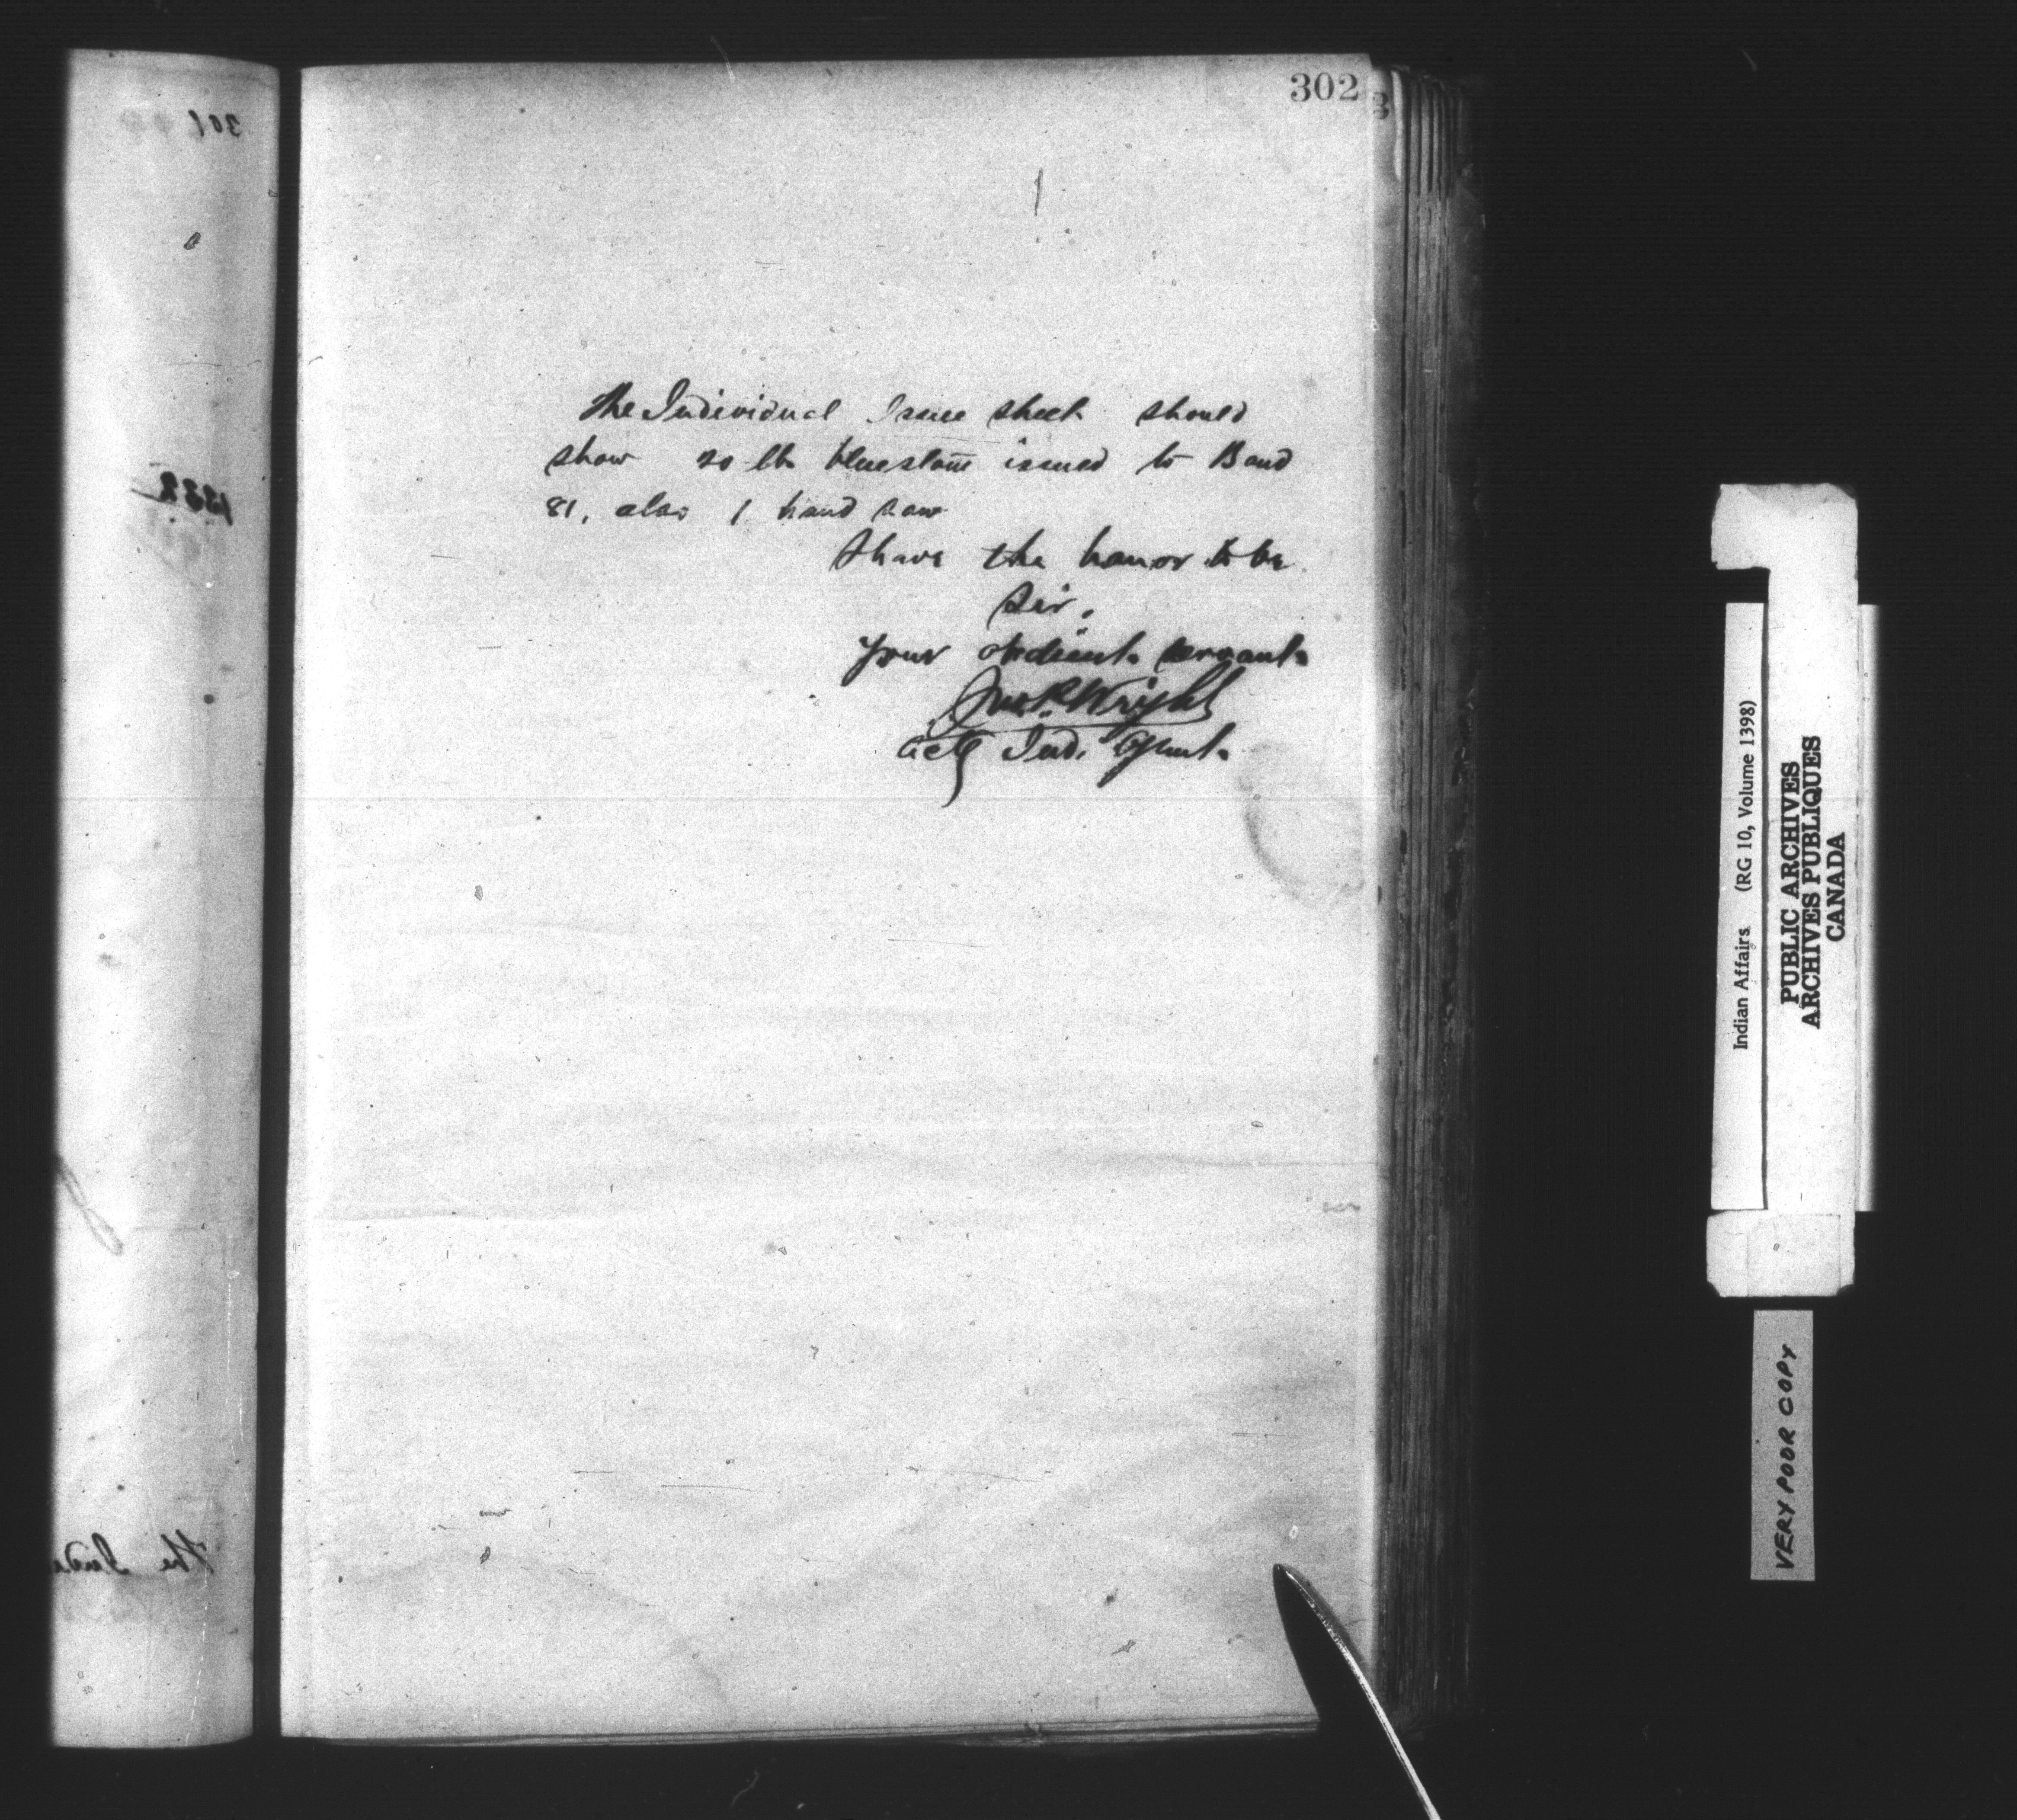 302
The Individual Issue sheet should
show 20 lb bluestone issued to Band
81, also 1 hand saw
I have the honor to be
Sir,
Your obedient servant
Jno P. Wright
actg Ind. Agent.
301
1332
the Inda
Indian Affairs (RG 10, Volume 1398)
PUBLIC ARCHIVES
ARCHIVES PUBLIQUES
CANADA
VERY POOR COPY